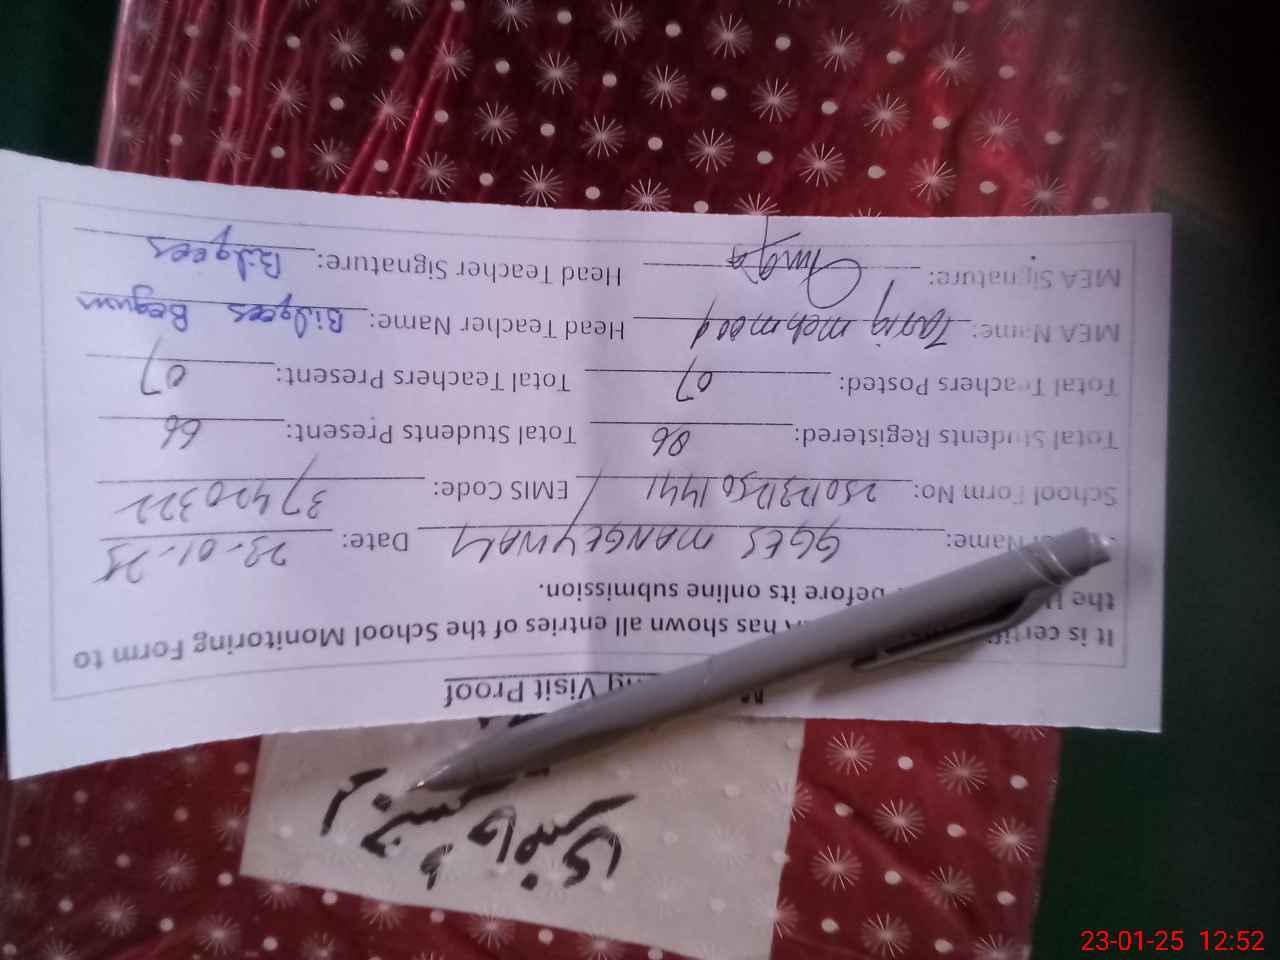 رجسٹر حاضری
Visit Proof
It is has shown all entries of the School Monitoring Form to
the before its online submission.
Name: GGES MANGEYWALY Date: 23-01-25
School Form No: 25012312501441 EMIS Code: 37420322
Total Students Registered: 86 Total Students Present: 66
Total Teachers Posted: 07 Total Teachers Present: 07
MEA Name: Tariq mehmood Head Teacher Name: Bilqees Begum
MEA Signature: Head Teacher Signature: Bilqees
23-01-25 12:52